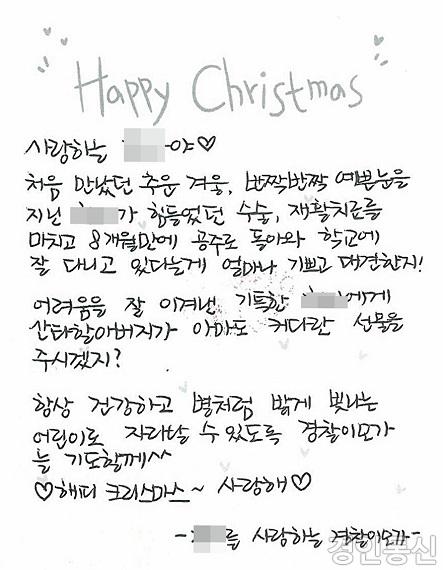 Happy Christmas
사랑하는 야♡
처음 만났던 추운 겨울, 반짝반짝 예쁜눈을
지닌 가 힘들었던 수술, 재활치료를
마치고 8개월만에 공주로 돌아와 학교에
잘 다니고 있다는게 얼마나 기쁘고 대견한지!
어려움을 잘 이겨낸 기특한 에게
산타할아버지가 아마도 커다란 선물을
주시겠지?
항상 건강하고 별처럼 밝게 빛나는
어린이로 자라날 수 있도록 경찰이모가
늘 기도할께^^
♡해피 크리스마스~ 사랑해♡
- 를 사랑하는 경찰이모가-
경인통신